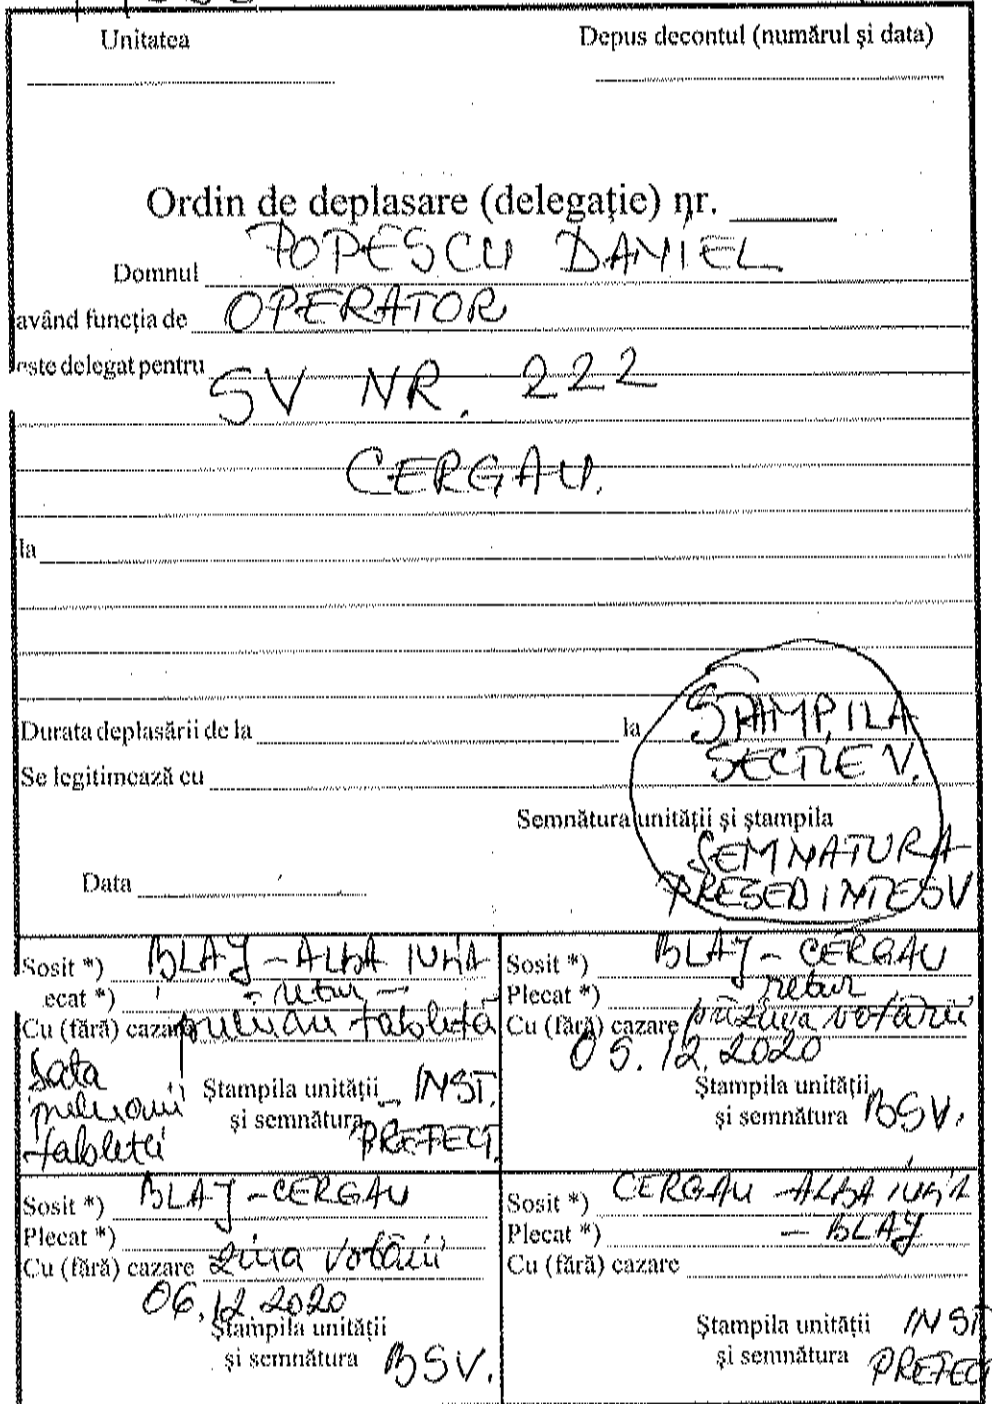 Unitatea
Depus decontul (numărul şi data)
Ordin de deplasare (delegaţie) nr.
Domnul POPESCU DANIEL
având funcţia de OPERATOR
este delegat pentru SV NR. 222
CERGAU.
la
Durata deplasării de la la ŞTAMPILA
SECTIE V.
Se legitimează cu
Semnătura unităţii şi ştampila
SEMNATURA
PRESEDINTE SV
Data
Sosit *) BLAJ - ALBA IULIA
ecat *) - retur -
Cu (fără) cazare preluare tabletă
Data
preluarii
tabletei
Ştampila unităţii INST.
şi semnătura PREFECT.
Sosit *) BLAJ - CERGAU
Plecat *) retur
Cu (fără) cazare preziua votării
05.12.2020
Ştampila unităţii
şi semnătura BSV.
Sosit *) BLAJ - CERGAU
Plecat *)
Cu (fără) cazare ziua votării
06.12.2020
Ştampila unităţii
şi semnătura BSV.
Sosit *) CERGAU - ALBA IULIA
Plecat *) - BLAJ
Cu (fără) cazare
Ştampila unităţii INST
şi semnătura PREFECT